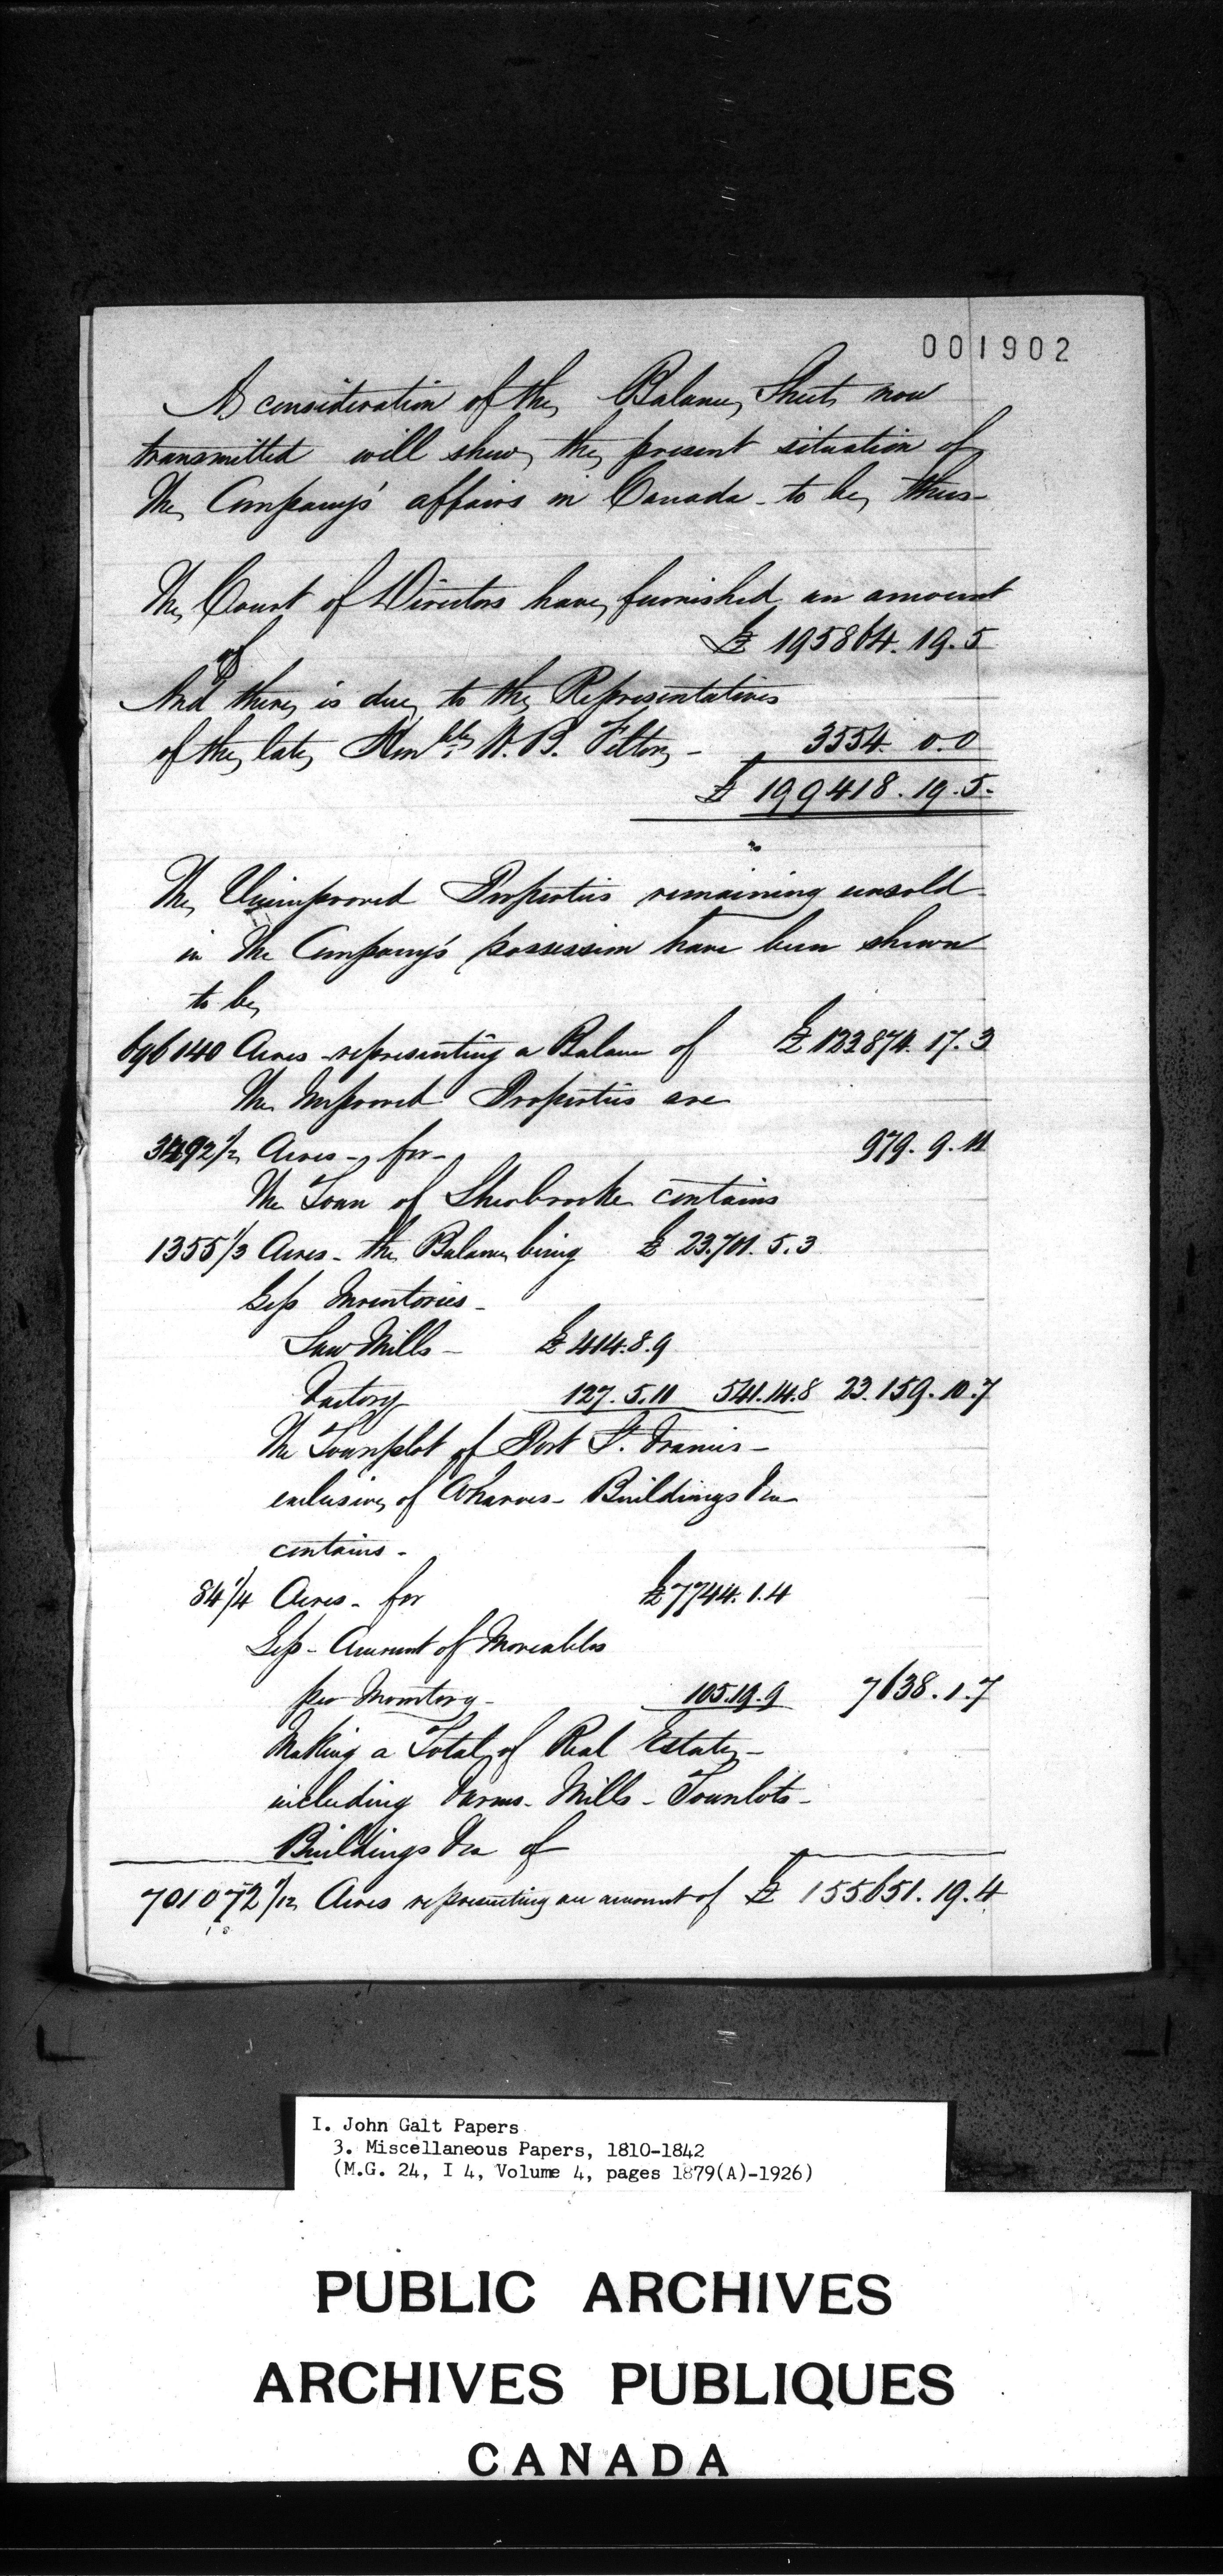 001902
A consideration of the Balance Sheet now
transmitted will shew the present situation of
the Company's affairs in Canada - to be thus -
The Court of Directors have furnished an amount
of £ 195864. 19. 5
And there is due to the Representatives
of the late Honble. W. B. Felton - 3554. 0. 0
£ 199418. 19. 5 -
The Unimproved Properties remaining unsold
in the Company's possession have been shewn
to be
696140 Acres - representing a Balance of £ 123874. 17. 3
The Improved Properties are
3492 1/2 Acres - for - 979. 9. 11
The Town of Sherbrooke contains
1355 1/3 Acres - the Balance being £ 23.701. 5. 3
Less Inventories -
Saw Mills - £ 414. 8. 9
Factory 127. 5. 11 541. 14. 8 23.159. 10. 7
The Townplot of Port St. Francis -
exclusive of Wharves - Buildings &ca
contains -
84 1/4 Acres - for £ 7744. 1. 4
Less - Amount of Moveables
per Inventory - 105. 19. 9 7638. 1. 7
Making a Total of Real Estate -
including Farms - Mills - Townlots -
Buildings &ca of
701072 1/12 Acres representing an amount of £ 155651. 19. 4
I. John Galt Papers
3. Miscellaneous Papers, 1810-1842
(M.G. 24, I 4, Volume 4, pages 1879(A)-1926)
PUBLIC ARCHIVES
ARCHIVES PUBLIQUES
CANADA